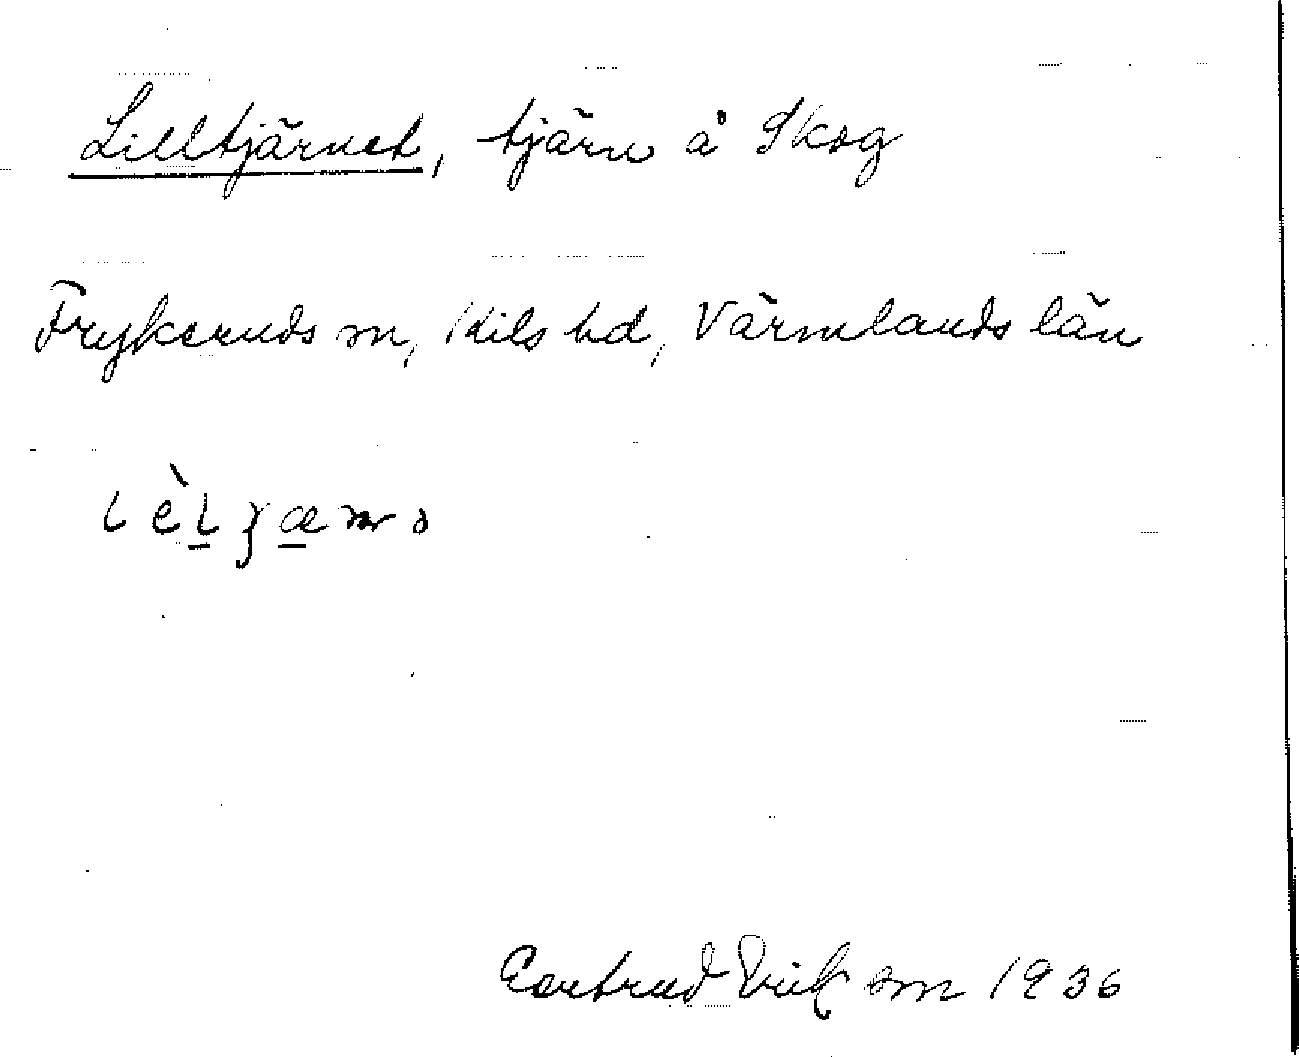 Lilltjärnet, tjärn å Skog
Frykeruds sn, Kils hd, Värmlands län
Gertrud Erikson 1936